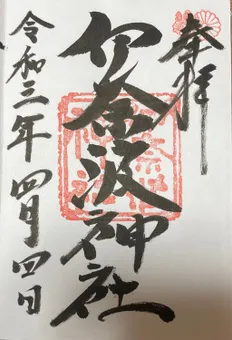 奉拝
伊奈波神社
令和三年四月四日